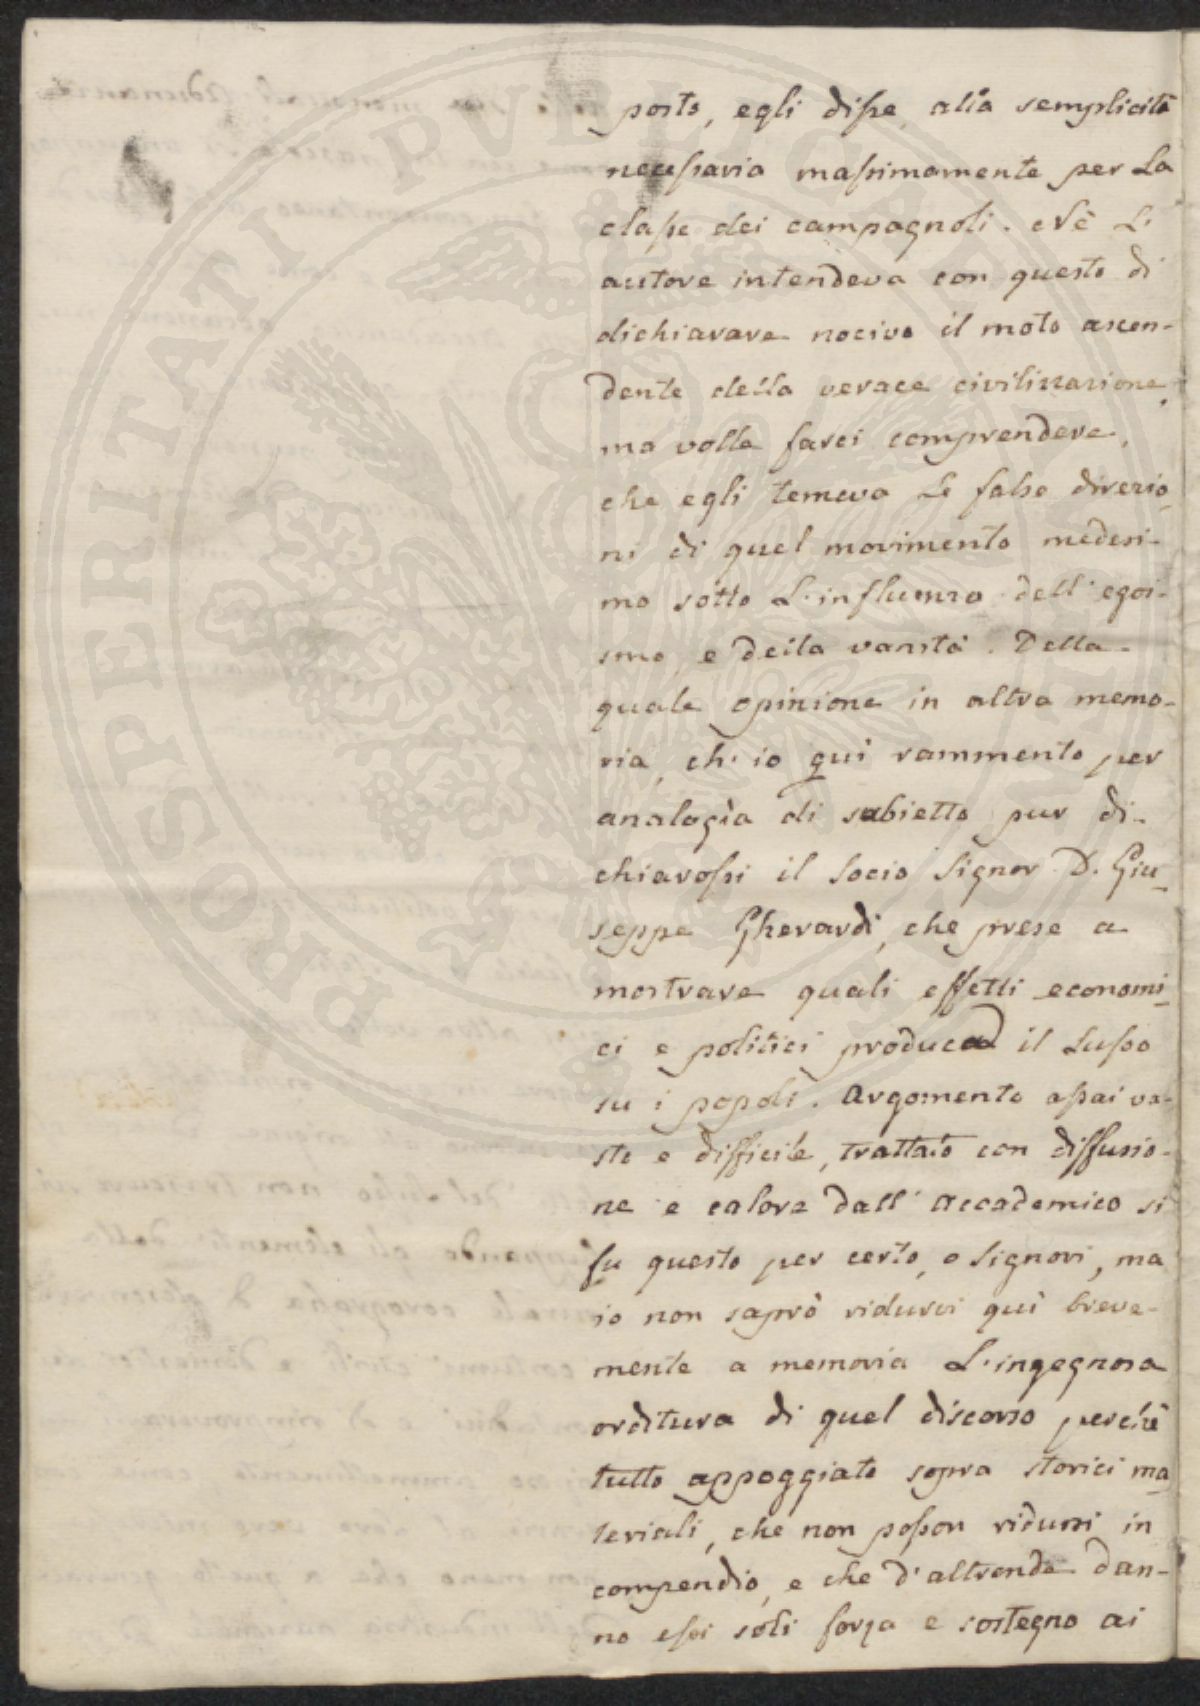 posto, egli disse, alla semplicità
necessaria massimamente per la
classe dei campagnoli. Nè L'
autore intendeva con questo di
dichiarare nocivo il moto ascen-
dente della verace civilizzazione,
ma volle farci comprendere,
che egli temeva le false direzio-
ni di quel movimento medesi-
mo sotto L'influenza dell'egoi-
smo, e della vanità. Della
quale opinione in altra memo-
ria, ch'io quì rammento per
analogìa di subietto pur di-
chiarossi il Socio Signor D. Giu-
seppe Gherardi, che prese a
mostrare quali effetti economi-
ci e politici produca il Lusso
su i popoli. Argomento assai va-
sto e difficile, trattato con diffusio-
ne e calore dall'Accademico si
fu questo per certo, o Signori, ma
io non saprò ridurvi quì breve-
mente a memoria L'ingegnosa
orditura di quel discorso perchè
tutto appoggiato sopra storici ma-
teriali, che non posson ridursi in
compendio, e che d'altronde dan-
no essi soli forza e sostegno ai
PROSPERITATI PVBLICAE